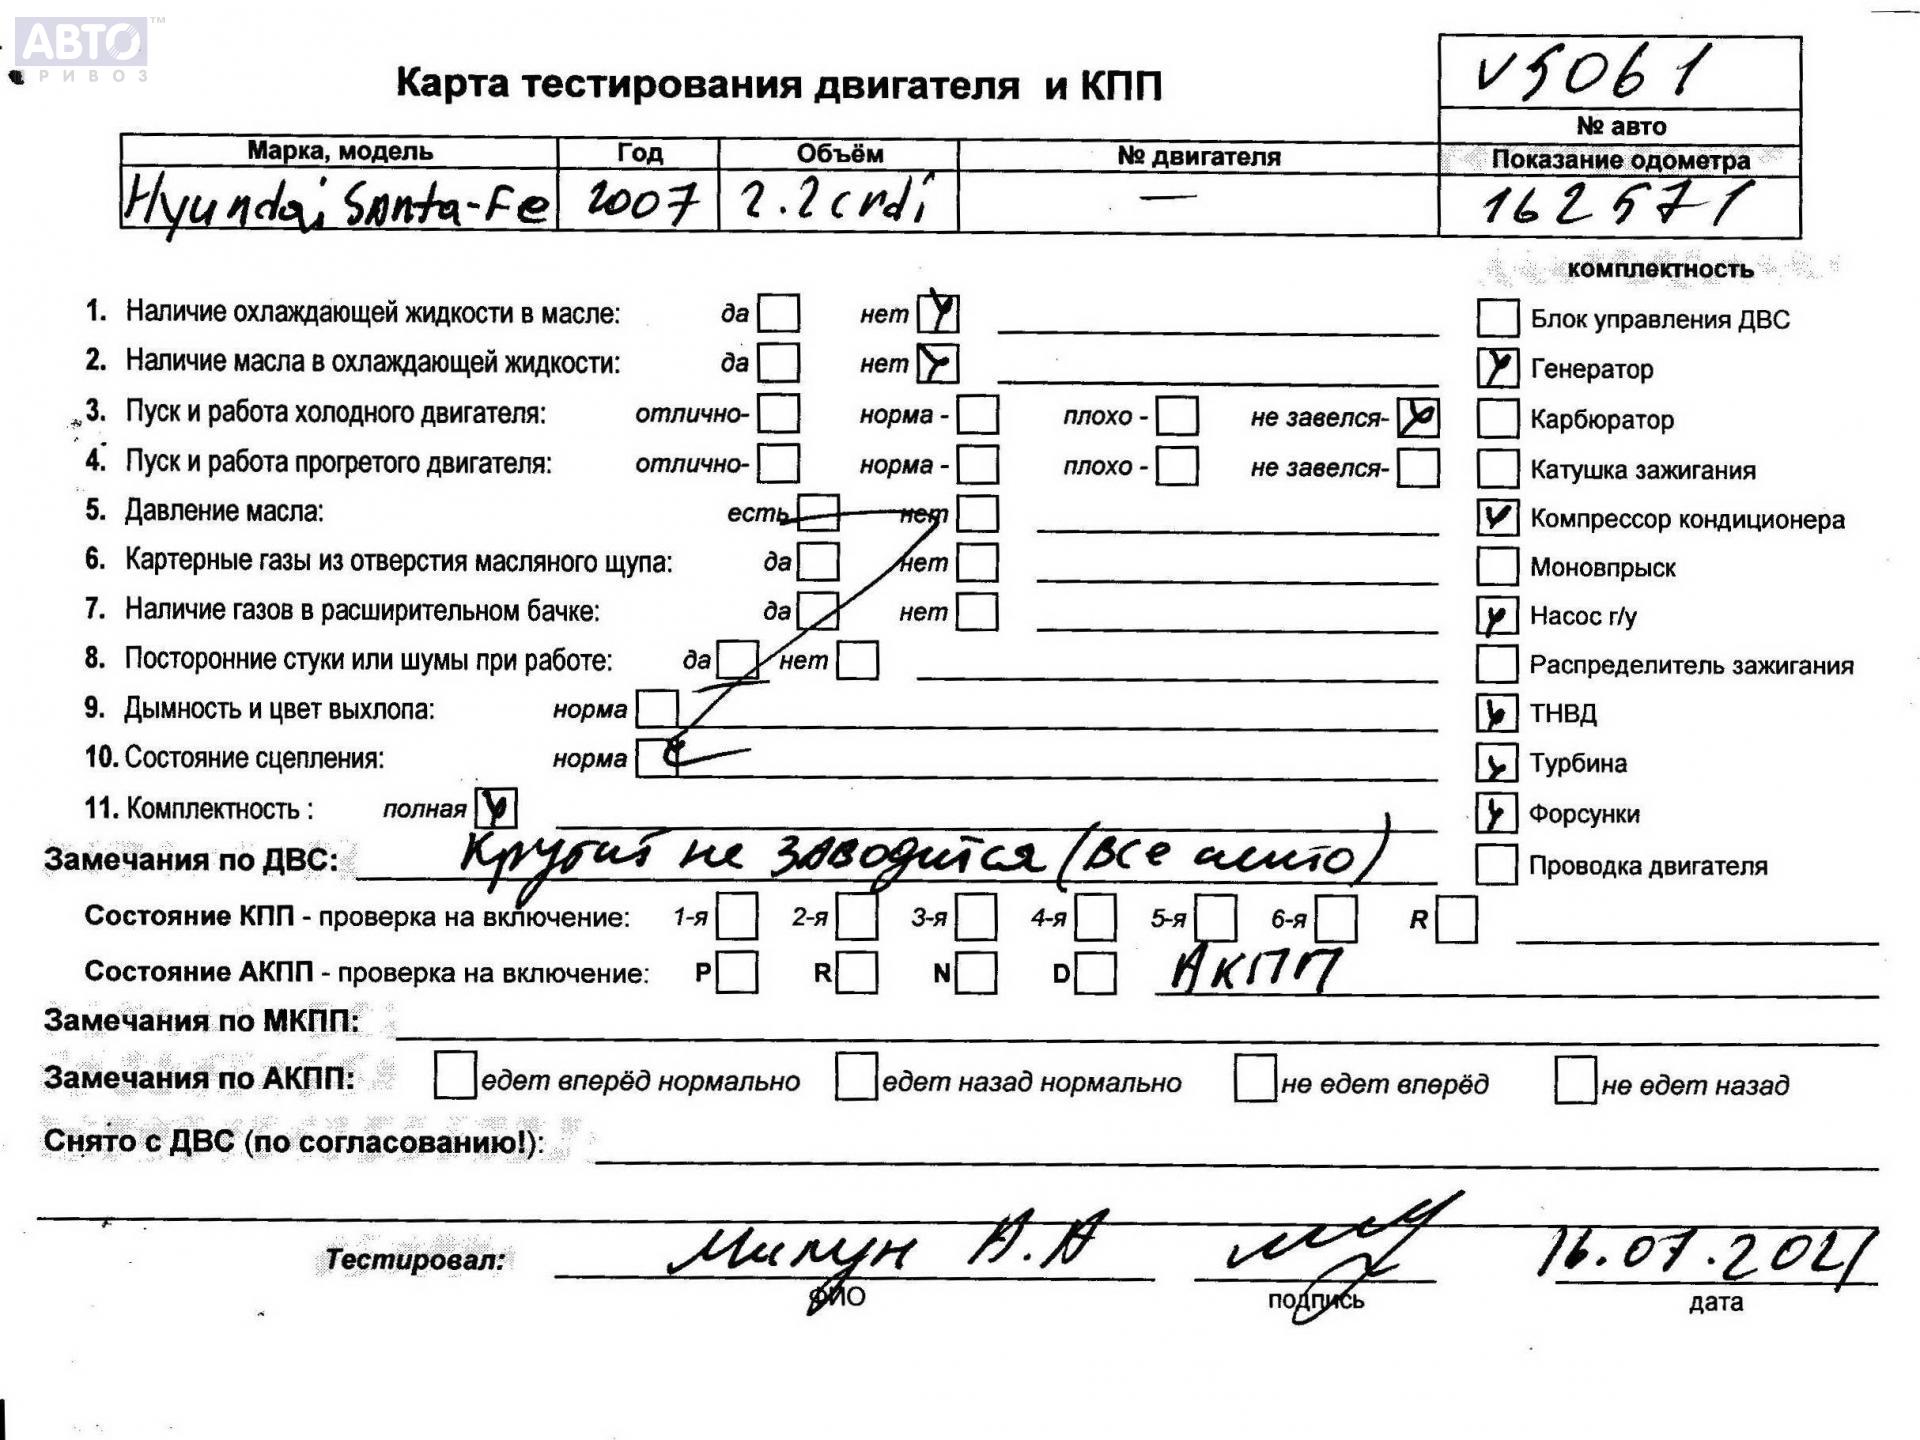 АВТО™
ПРИВОЗ
Карта тестирования двигателя и КПП
V5061
№ авто
Марка, модель Год Объём № двигателя Показание одометра
Hyundai Santa-Fe 2007 2.2crdi — 162571
комплектность
1. Наличие охлаждающей жидкости в масле: да нет
Блок управления ДВС
2. Наличие масла в охлаждающей жидкости: да нет
Генератор
3. Пуск и работа холодного двигателя: отлично- норма - плохо - не завелся-
Карбюратор
4. Пуск и работа прогретого двигателя: отлично- норма - плохо - не завелся-
Катушка зажигания
5. Давление масла: есть нет
Компрессор кондиционера
6. Картерные газы из отверстия масляного щупа: да нет
Моновпрыск
7. Наличие газов в расширительном бачке: да нет
Насос г/у
8. Посторонние стуки или шумы при работе: да нет
Распределитель зажигания
9. Дымность и цвет выхлопа: норма
ТНВД
10. Состояние сцепления: норма
Турбина
11. Комплектность : полная
Форсунки
Замечания по ДВС: Крутит не заводится (все )
Проводка двигателя
Состояние КПП - проверка на включение: 1-я 2-я 3-я 4-я 5-я 6-я R
Состояние АКПП - проверка на включение: P R N D АКПП
Замечания по МКПП:
Замечания по АКПП: едет вперёд нормально едет назад нормально не едет вперёд не едет назад
Снято с ДВС (по согласованию!):
Тестировал: А.А 16.07.2021
ФИО подпись дата